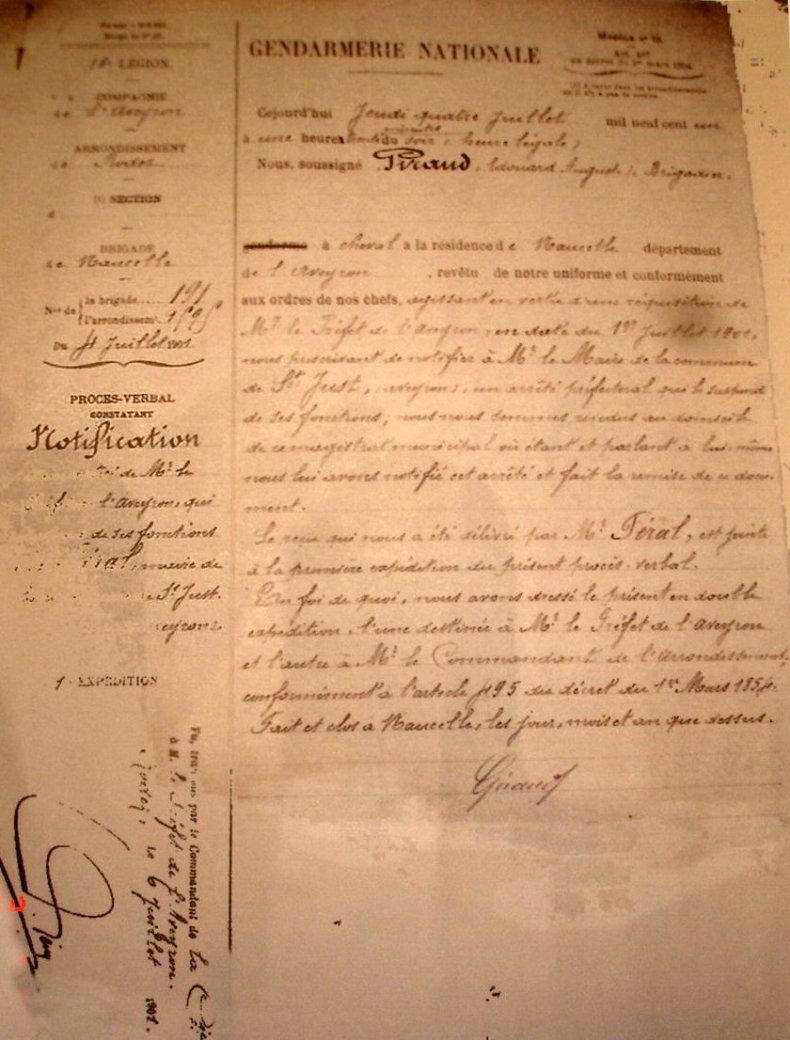 LÉGION
COMPAGNIE
de l'Aveyron
ARRONDISSEMENT
de Rodez
SECTION
d
BRIGADE
de Naucelle
Nos de la brigade..... 191
l'arrondissemt.
Du 4 Juillet 1901
PROCES-VERBAL
CONSTATANT
Notification
de Mr. le
l'Aveyron, qui
de ses fonctions
maire de
St Just.
1 EXPEDITION
GENDARMERIE NATIONALE
MODÈLE N°
Cejourd'hui Jeudi quatre Juillet mil neuf cent un
à une heure trente minutes du soir, (heure légale)
Nous, soussigné Giraud, (Edouard Auguste), Brigadier,
gendarme à cheval à la résidence de Naucelle département
de l'Aveyron, revêtu de notre uniforme et conformément
aux ordres de nos chefs, agissant en vertu d'une réquisition de
Mr. le Préfet de l'Aveyron, en date du 1er Juillet 1901,
nous prescrivant de notifier à Mr. le Maire de la commune
de St Just, (Aveyron), un arrêté préfectoral qui le suspend
de ses fonctions, nous nous sommes rendus au domicile
de ce magistrat municipal où étant et parlant à lui-même
nous lui avons notifié cet arrêté et fait la remise de ce docu-
ment.
Le reçu qui nous a été délivré par Mr. Féral, est jointe
à la première expédition du présent procès-verbal.
En foi de quoi, nous avons dressé le présent en double
expédition, l'une destinée à Mr. le Préfet de l'Aveyron
et l'autre à Mr. le Commandant de l'Arrondissement,
conformément à l'article 495 du décret du 1er Mars 1854.
Fait et clos à Naucelle, les jour, mois et an que dessus.
Giraud
Vu, par le Commandant de la Cie
à M. le Préfet de l'Aveyron.
le 6 Juillet 1901.